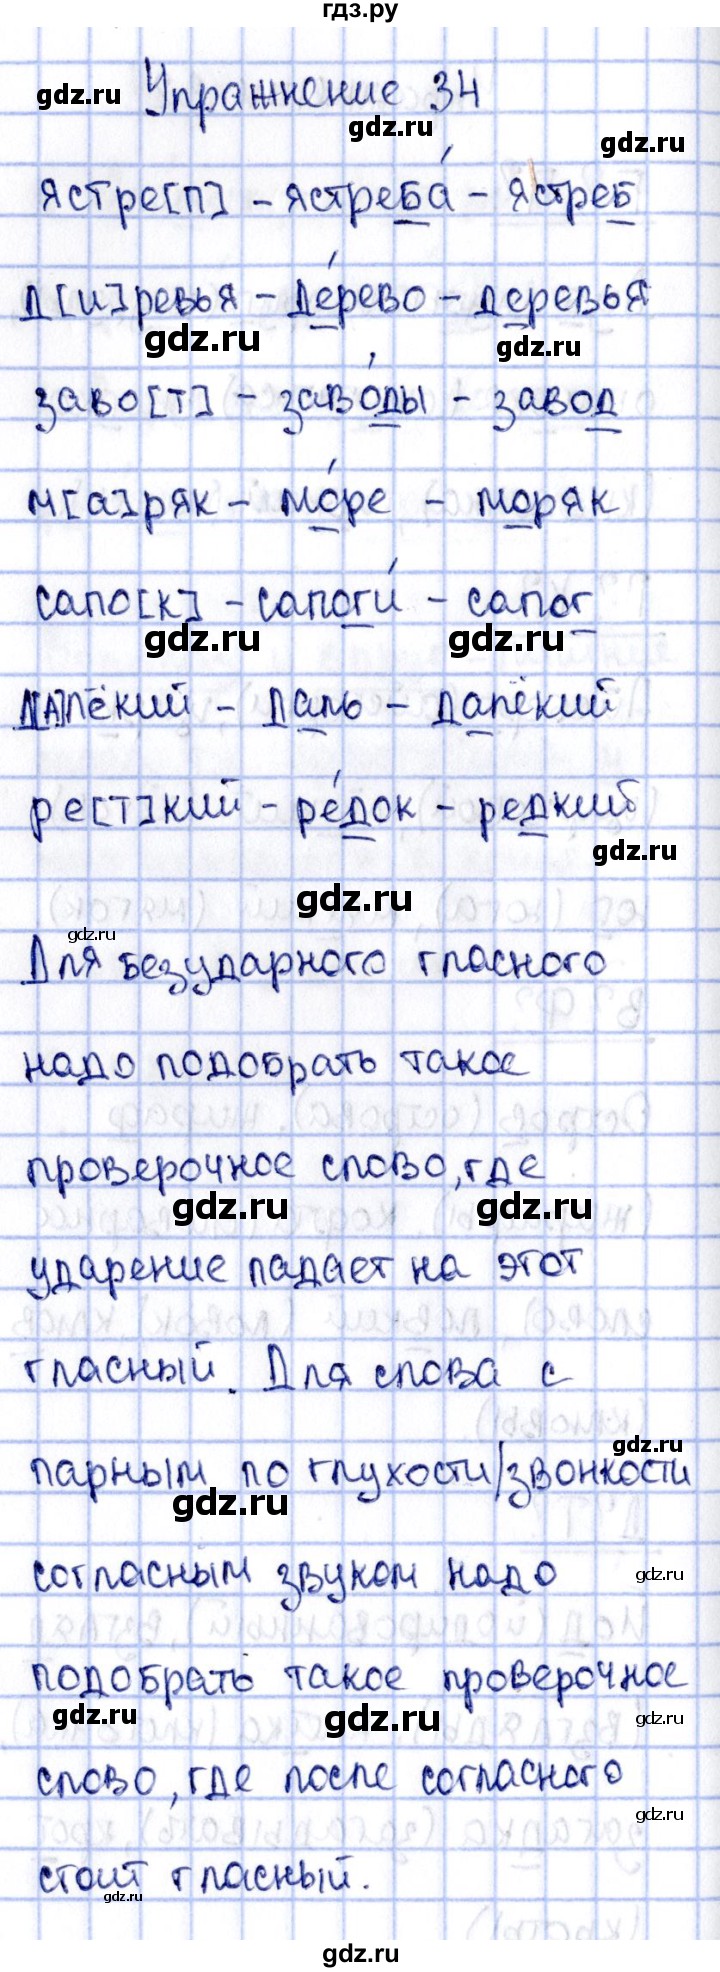 гдз.ру
gdz.ru
Упражнение 34
gdz.ru
gdz.ru
ястре[п] - ястреба́ - ястреб
д[и]ревья - де́рево - деревья
gdz.ru
gdz.ru
заво[т] - заво́ды - завод
м[а]ряк - мо́ре - моряк
сапо[к] - сапоги́ - сапог
gdz.ru
gdz.ru
д[а]лёкий - даль - далёкий
ре[т]кий - ре́док - редкий
gdz.ru
gdz.ru
gdz.ru
Для безударного гласного
надо подобрать такое
проверочное слово, где
gdz.ru
gdz.ru
ударение падает на этот
гласный. Для слова с
gdz.ru
парным по глухости/звонкости
gdz.ru
согласным звуком надо
gdz.ru
подобрать такое проверочное
gdz.ru
gdz.ru
gdz.ru
слово, где после согласного
gdz.ru
стоит гласный.
gdz.ru
gdz.ru